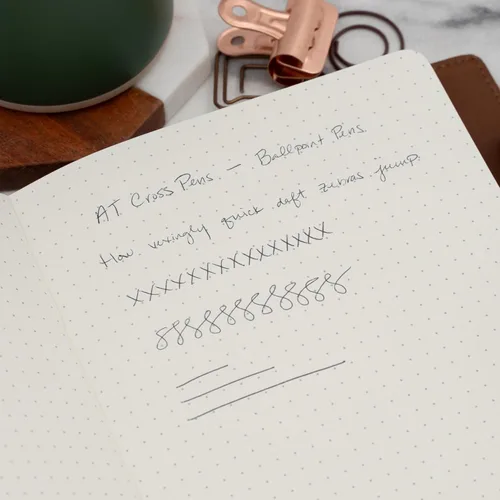 AT Cross Pens. — Ballpoint Pens
How vexingly quick daft zebras jump.
XXXXXXXXXXXXXXX
88888888888